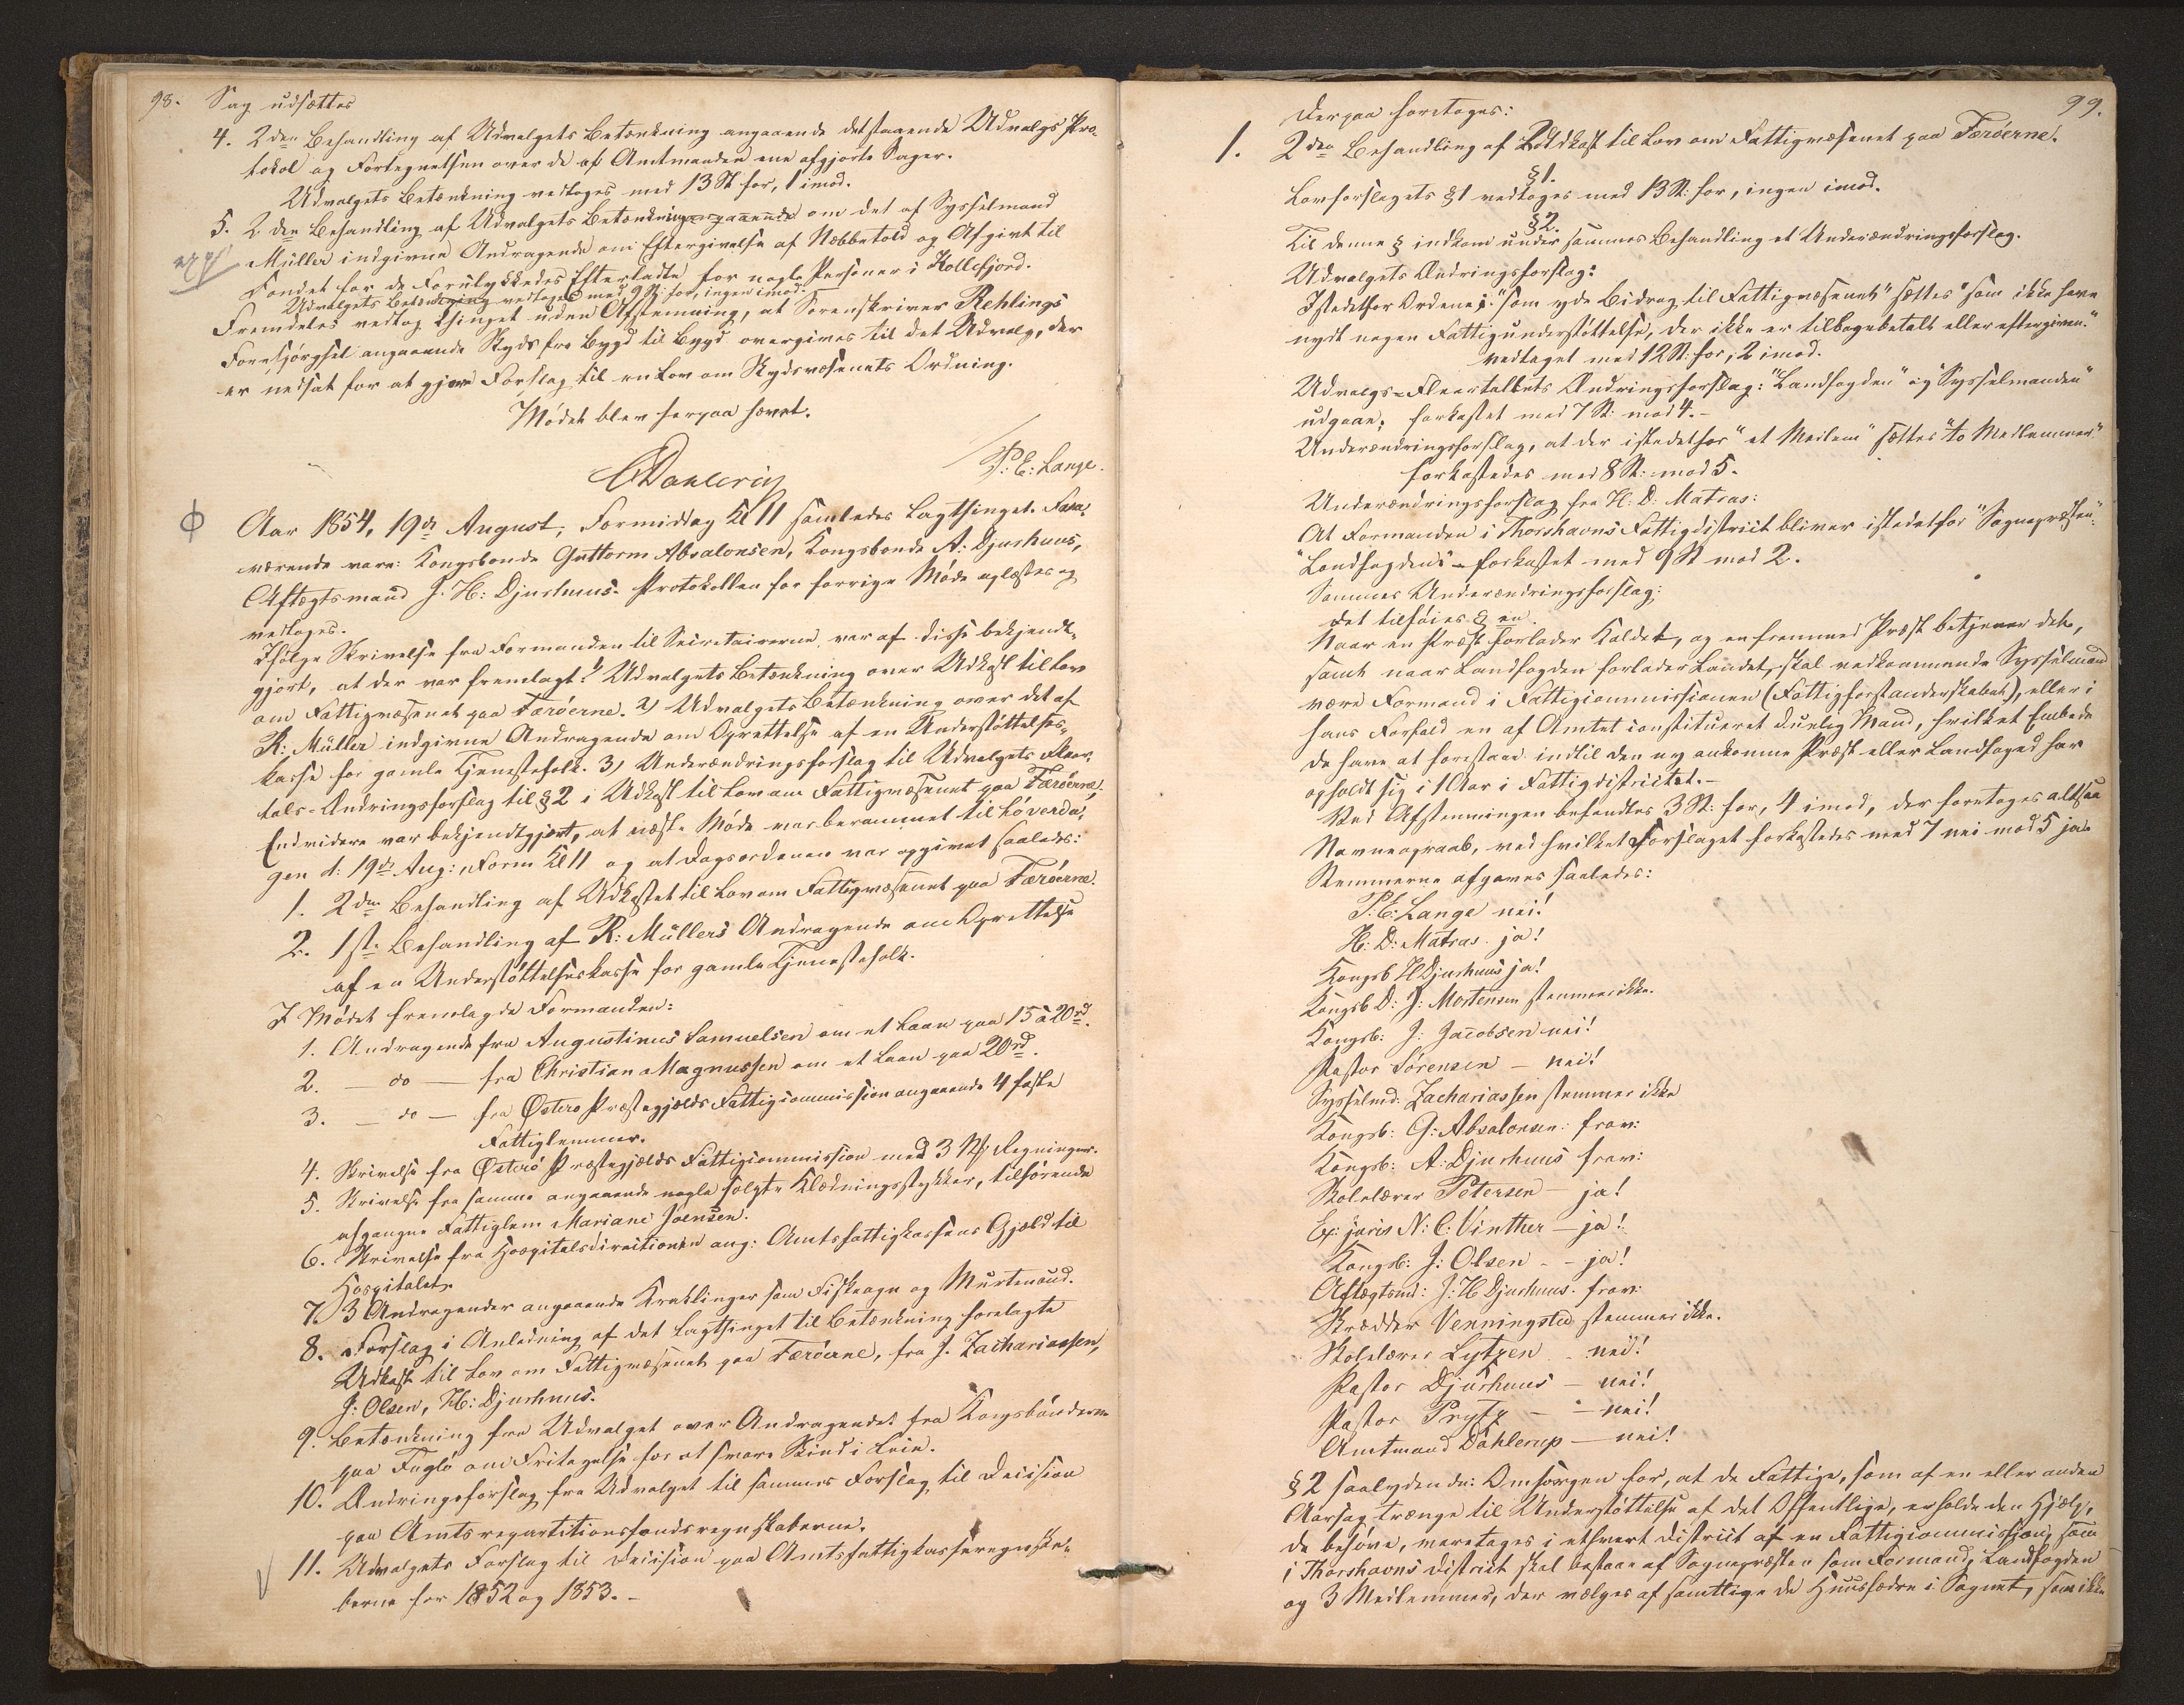 98.
Sag udsættes
4. 2den Behandling af Udvalgets Betænkning angaaende detstaaende Udvalgs Pro-
tokol og Fortegnelsen over de af Amtmanden ene afgjorte Sager.
Udvalgets Betænkning vedtoges med 13 St for, 1 imod.
5. 2den Behandling af Udvalgets Betænkning angaaende om det af Sysselmand
Müller indgivne Andragende om Eftergivelse af Næbbetold og Afgivt til
Fondet for de Forulykkedes Efterladte for nogle Personer i Kollefjord.
Udvalgets Betænkning vedtoges med 9 St: for, ingen imod.
Fremdeles vedtog Thinget uden Afstemning, at Sorenskriver Rehlings
Forespørgsel angaaende Skyds fra Bygd til Bygd overgives til det Udvalg, der
er nedsat for at gjøre Forslag til en Lov om Skydsvæsenets Ordning.
Mødet blev herpaa hævet.
CDahlerup
P: E: Lange.
Aar 1854, 19de August, Formiddag Kl 11 samledes Lagthinget. Fra-
værende vare: Kongsbonde Guttorm Absalonsen, Kongsbonde A: Djurhuus,
Aftægtsmand J. H: Djurhuus. Protokollen for forrige Møde oplæstes og
vedtoges.
Ifølge Skrivelse fra Formanden til Secretairerne, var af disse bekjendt-
gjort, at der var fremlagt: 1) Udvalgets Betænkning over Udkast til Lov
om Fattigvæsenet paa Færöerne. 2) Udvalgets Betænkning over det af
R: Müller indgivne Andragende om Oprettelse af en Understøttelses-
kasse for gamle Tjenestefolk. 3) Underændringsforslag til Udvalgets Fleer-
tals-Ændringsforslag til § 2 i Udkast til Lov om Fattigvæsenet paa Færöerne.
Endvidere var bekjendtgjort, at næste Møde var berammet til Løverda-
gen d: 19de Aug: Form Kl 11 og at Dagsordenen var opgivet saaledes:
1. 2den Behandling af Udkastet til Lov om Fattigvæsenet paa Færöerne.
2. 1ste Behandling af R: Müllers Andragende om Oprettelse
af en Understøttelseskasse for gamle Tjenestefolk.
I Mødet fremlagde Formanden:
1. Andragende fra Augustinus Samuelsen om et Laan paa 15 à 20 rd.
2. — do — fra Christian Magnussen om et Laan paa 20 rd.
3. — do — fra Østerø Præstegjælds Fattigcommission angaaende 4 faste
Fattiglemmer.
4. Skrivelse fra Østerö Præstegjælds Fattigcommission med 3 Regninger.
5. Skrivelse fra samme angaaende nogle solgte Klædningsstykker, tilhørende
afgangne Fattiglem Mariane Joensen.
6. Skrivelse fra Hospitalsdirectionen ang: Amtsfattigkassens Gjæld til
Hospitalet.
7. 3 Andragender angaaende Kræklinger som Fiskeagn og
8. Forslag i Anledning af det Lagthinget til Betænkning forelagte
Udkast til Lov om Fattigvæsenet paa Færöerne, fra J. Zachariassen,
J: Olsen, H: Djurhuus.
9. Betænkning fra Udvalget over Andragendet fra Kongsbønderne
paa Fuglø om Fritagelse for at svare Skind i Leie.
10. Ændringsforslag fra Udvalget til sammes Forslag til Decision
paa Amtsrepartitionsfondsregnskaberne.
11. Udvalgets Forslag til Decision paa Amtsfattigkasseregnska-
berne for 1852 og 1853. -
99.
Derpaa foretoges:
1. 2den Behandling af Udkast til Lov om Fattigvæsenet paa Færöerne.
§ 1.
Lovforslagets § 1 vedtoges med 13 St: for, ingen imod.
§ 2.
Til denne § indkom under sammes Behandling et Underændringsforslag.
Udvalgets Ændringsforslag:
Istedetfor Ordene: "som yde Bidrag til Fattigvæsenet" sættes "som ikke have
nydt nogen Fattigunderstøttelse, der ikke er tilbagebetalt eller eftergiven."
vedtaget med 12 St: for, 2 imod.
Udvalgs-Fleertallets Ændringsforslag: "Landfogden" og "Sysselmanden"
udgaae, forkastet med 7 St: mod 4. -
Underændringsforslag, at der istedetfor "et Medlem" sættes "to Medlemmer"
forkastedes med 8 St: mod 5.
Underændringsforslag fra H: D: Matras:
At Formanden i Thorshavns Fattigdistrict bliver istedetfor "Sognepræsten":
"Landfogden" - forkastet med 9 St mod 2.
Sammes Underændringsforslag:
Det tilføies § en.
Naar en Præst forlader Kaldet, og en fremmed Præst betjener det,
samt naar Landfogden forlader Landet, skal vedkommende Sysselmand
være Formand i Fattigcommissionen (Fattigforstanderskabet), eller i
hans Forfald en af Amtet constitueret duelig Mand, hvilket Embede
de have at forestaae indtil den ny ankomne Præst eller Landfoged har
opholdt sig i 1 Aar i Fattigdistrictet. -
Ved Afstemningen befandtes 3 St: for, 4 imod, der foretoges altsaa
Navneopraab, ved hvilket Forslaget forkastedes med 7 nei mod 5 ja.
Stemmerne afgaves saaledes:
P: E: Lange nei!
H: D: Matras. ja!
Kongsb H Djurhuus ja!
Kongsb D: J: Mortensen stemmer ikke.
Kongsb: J: Jacobsen nei!
Pastor Sørensen — nei!
Sysselmd: Zachariassen stemmer ikke
Kongsb: G: Absalonsen: frav:
Kongsb: A: Djurhuus frav:
Skolelærer Petersen — ja!
Ex: juris N: C: Vinther — ja!
Kongsb: J: Olsen - - ja!
Aftægtsmd: J: H Djurhuus. frav:
Skrædder Venningsted stemmer ikke.
Skolelærer Lytzen - nei!
Pastor Djurhuus — nei!
Pastor Prytz — — nei!
Amtmand Dahlerup — nei!
§ 2 saalydende: Omsorgen for, at de Fattige, som af en eller anden
Aarsag trænge til Understøttelse af det Offentlige, erholde den Hjælp,
de behøve, varetages i ethvert District af en Fattigcommission, som
i Thorshavns District skal bestaae af Sognepræsten som Formand, Landfogden
og 3 Medlemmer, der vælges af samtlige de Huusfædre i Sognet, som ikke